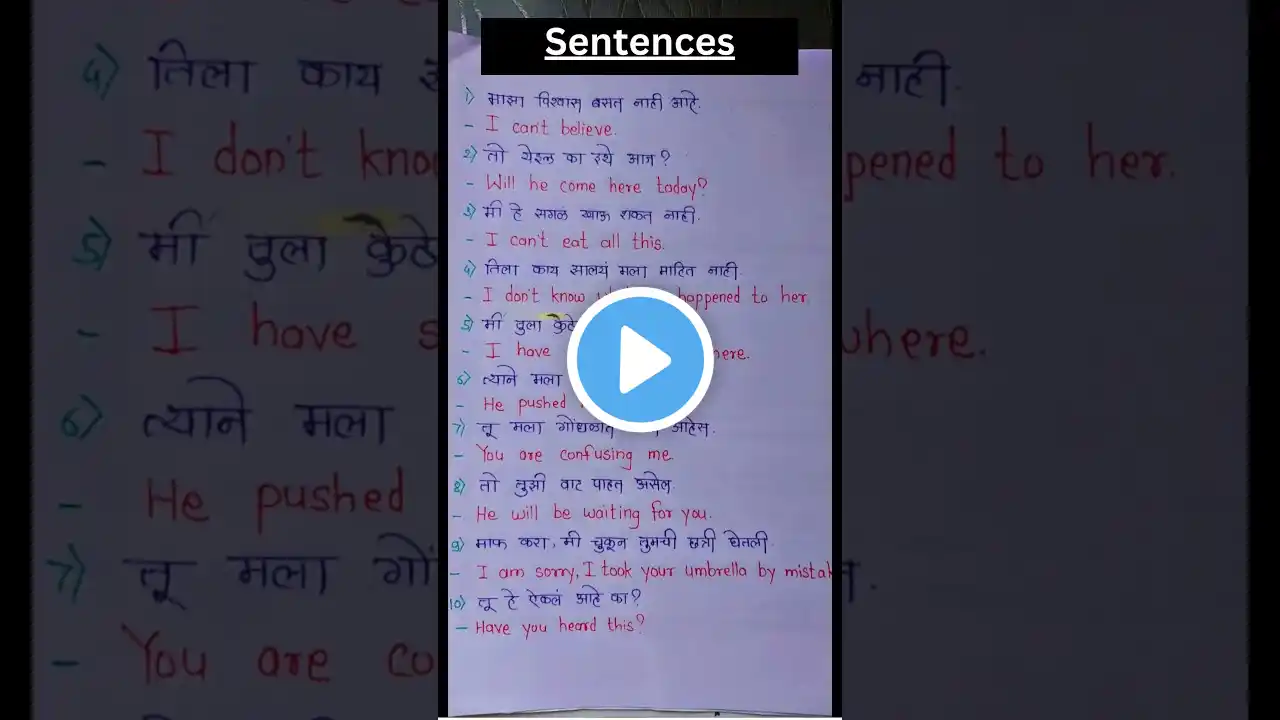 Sentences
1) माझा विश्वास बसत नाही आहे.
- I can't believe.
2) तो येईल का इथे आज?
- Will he come here today?
3) मी हे सगळं खाऊ शकत नाही.
- I can't eat all this.
4) तिला काय झालयं मला माहित नाही.
- I don't know happened to her.
5) मी तुला
- I have
6) त्याने मला
- He pushed
7) तू मला आहेस.
- You are confusing me.
8) तो तुझी वाट पाहत असेल.
- He will be waiting for you.
9) माफ करा, मी चुकून तुमची छत्री घेतली
- I am sorry, I took your umbrella by
10) तू हे ऐकलं आहे का?
- Have you heard this?